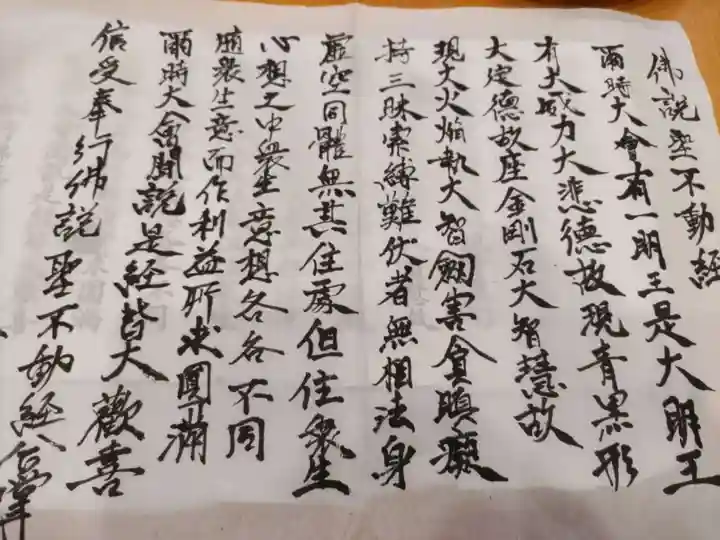 佛説聖不動経
爾時大會有一明王是大明王
有大威力大悲德故現青黒形
大定德故座金剛石大智慧故
現大火焔執大智劔害貪瞋癡
持三昧索縛難伏者無相法身
虚空同體無其住處但住衆生
心想之中衆生意想各各不同
随衆生意而作利益所求圓満
爾時大會聞説是経皆大歡喜
信受奉行佛説聖不動経
合掌